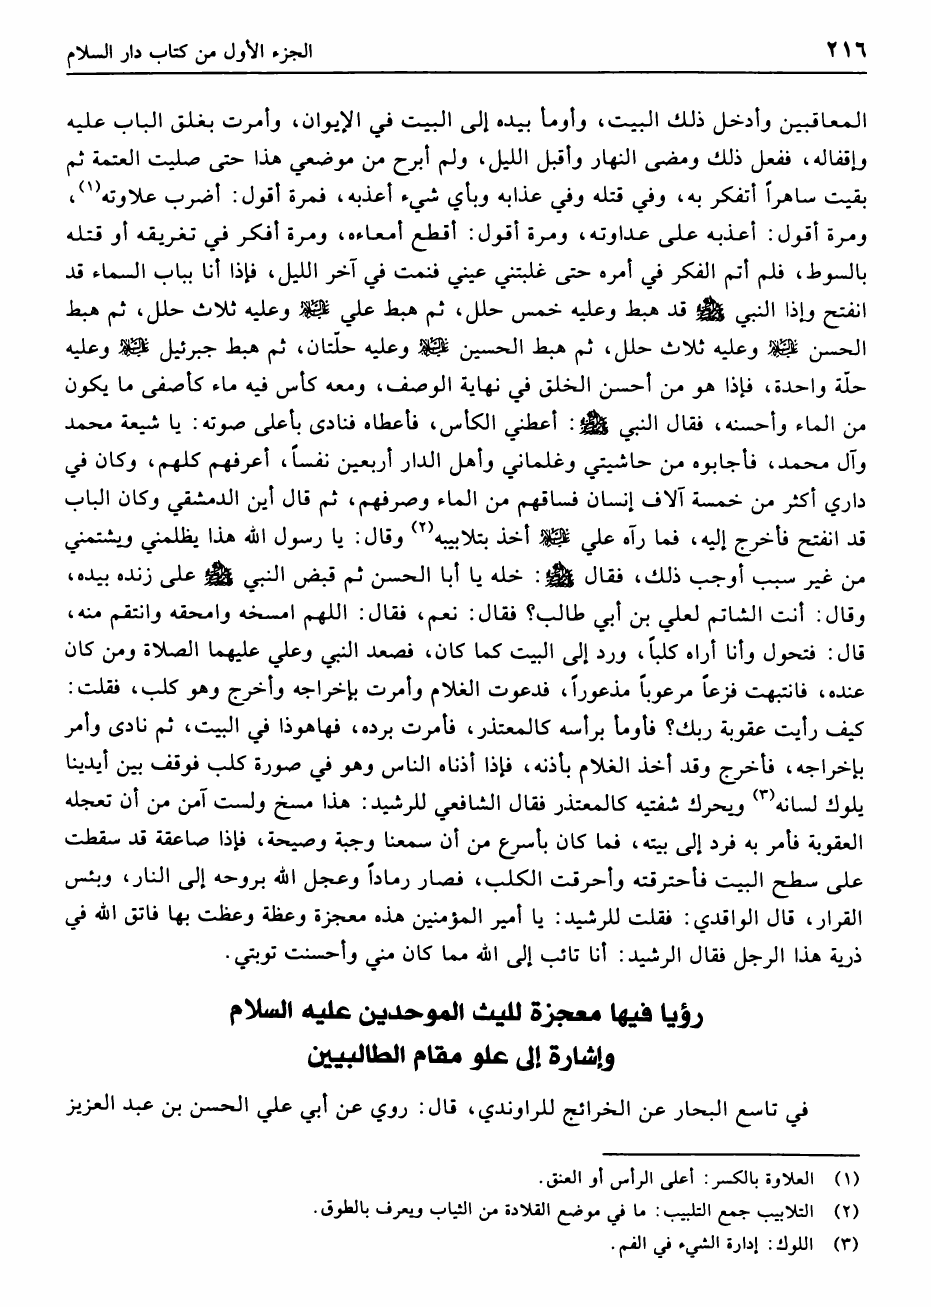 ٢١٦ الجزء الأول من كتاب دار السلام
المعاقبين وأدخل ذلك البيت، وأومأ بيده إلى البيت في الإيوان، وأمرت بغلق الباب عليه
وإقفاله، ففعل ذلك ومضى النهار وأقبل الليل، ولم أبرح من موضعي هذا حتى صليت العتمة ثم
بقيت ساهراً أتفكر به، وفي قتله وفي عذابه وبأي شيء أعذبه، فمرة أقول: أضرب علاوته(١)،
ومرة أقول: أعذبه على عداوته، ومرة أقول: أقطع أمعاءه، ومرة أفكر في تغريقه أو قتله
بالسوط، فلم أتم الفكر في أمره حتى غلبتني عيني فنمت في آخر الليل، فإذا أنا بباب السماء قد
انفتح وإذا النبي ﷺ قد هبط وعليه خمس حلل، ثم هبط علي عليه السلام وعليه ثلاث حلل، ثم هبط
الحسن عليه السلام وعليه ثلاث حلل، ثم هبط الحسين عليه السلام وعليه حلّتان، ثم هبط جبرئيل عليه السلام وعليه
حلّة واحدة، فإذا هو من أحسن الخلق في نهاية الوصف، ومعه كأس فيه ماء كأصفى ما يكون
من الماء وأحسنه، فقال النبي ﷺ: أعطني الكأس، فأعطاه فنادى بأعلى صوته: يا شيعة محمد
وآل محمد، فأجابوه من حاشيتي وغلماني وأهل الدار أربعين نفساً، أعرفهم كلهم، وكان في
داري أكثر من خمسة آلاف إنسان فساقهم من الماء وصرفهم، ثم قال أين الدمشقي وكان الباب
قد انفتح فأخرج إليه، فما رآه علي عليه السلام أخذ بتلابيبه(٢) وقال: يا رسول الله هذا يظلمني ويشتمني
من غير سبب أوجب ذلك، فقال ﷺ: خله يا أبا الحسن ثم قبض النبي ﷺ على زنده بيده،
وقال: أنت الشاتم لعلي بن أبي طالب؟ فقال: نعم، فقال: اللهم امسخه وامحقه وانتقم منه،
قال: فتحول وأنا أراه كلباً، ورد إلى البيت كما كان، فصعد النبي وعلي عليهما الصلاة ومن كان
عنده، فانتبهت فزعاً مرعوباً مذعوراً، فدعوت الغلام وأمرت بإخراجه وأخرج وهو كلب، فقلت:
كيف رأيت عقوبة ربك؟ فأومأ برأسه كالمعتذر، فأمرت برده، فهاهوذا في البيت، ثم نادى وأمر
بإخراجه، فأخرج وقد أخذ الغلام بأذنه، فإذا أذناه الناس وهو في صورة كلب فوقف بين أيدينا
يلوك لسانه(٣) ويحرك شفتيه كالمعتذر فقال الشافعي للرشيد: هذا مسخ ولست آمن من أن تعجله
العقوبة فأمر به فرد إلى بيته، فما كان بأسرع من أن سمعنا وجبة وصيحة، فإذا صاعقة قد سقطت
على سطح البيت فأحترقته وأحرقت الكلب، فصار رماداً وعجل الله بروحه إلى النار، وبئس
القرار، قال الواقدي: فقلت للرشيد: يا أمير المؤمنين هذه معجزة وعظة وعظت بها فاتق الله في
ذرية هذا الرجل فقال الرشيد: أنا تائب إلى الله مما كان مني وأحسنت توبتي.
رؤيا فيها معجزة لليث الموحدين عليه السلام
وإشارة إلى علو مقام الطالبيين
في تاسع البحار عن الخرائج للراوندي، قال: روي عن أبي علي الحسن بن عبد العزيز
(١) العلاوة بالكسر: أعلى الرأس أو العنق.
(٢) التلابيب جمع التلبيب: ما في موضع القلادة من الثياب ويعرف بالطوق.
(٣) اللوك: إدارة الشيء في الفم.